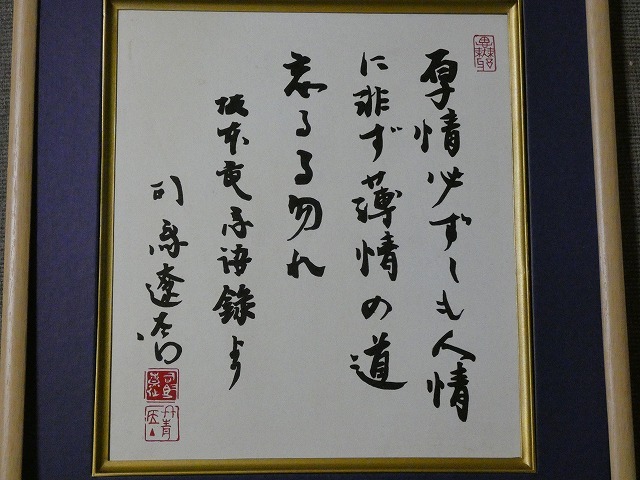 厚情必ずしも人情
に非ず薄情の道
忘るる勿れ
坂本竜馬語録より
司馬遼太郎
丹青